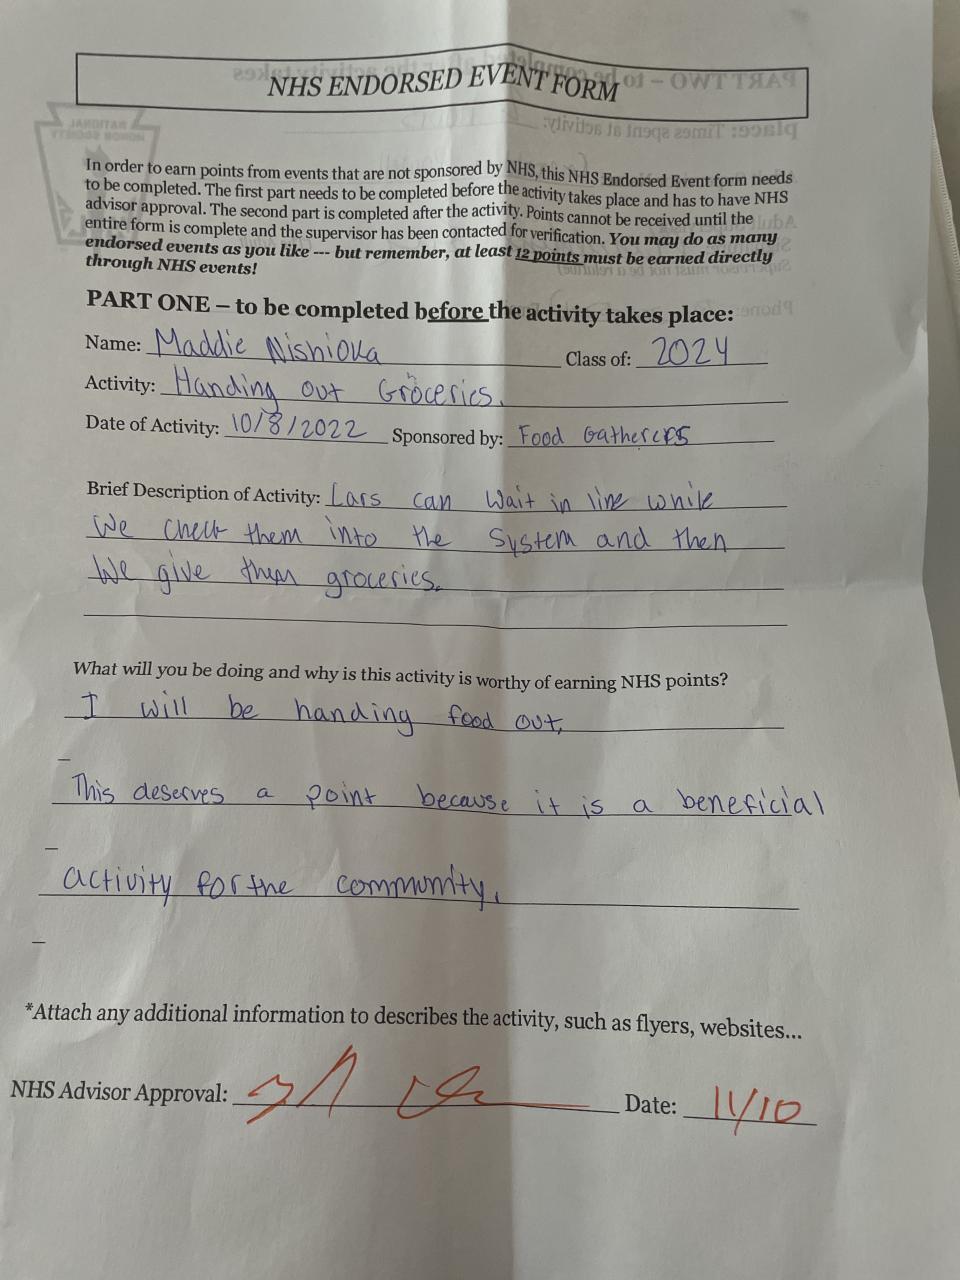 NHS ENDORSED EVENT FORM
In order to earn points from events that are not sponsored by NHS, this NHS Endorsed Event form needs
to be completed. The first part needs to be completed before the activity takes place and has to have NHS
advisor approval. The second part is completed after the activity. Points cannot be received until the
entire form is complete and the supervisor has been contacted for verification. You may do as many
endorsed events as you like --- but remember, at least 12 points must be earned directly
through NHS events!
PART ONE – to be completed before the activity takes place:
Name: Maddie Nishioka Class of: 2024
Activity: Handing out Groceries.
Date of Activity: 10/8/2022 Sponsored by: Food Gatherers
Brief Description of Activity: Cars can wait in line while
We check them into the System and then
We give them groceries.
What will you be doing and why is this activity is worthy of earning NHS points?
I will be handing food out,
This deserves a point because it is a beneficial
activity for the community.
*Attach any additional information to describes the activity, such as flyers, websites...
NHS Advisor Approval: Date: 11/10